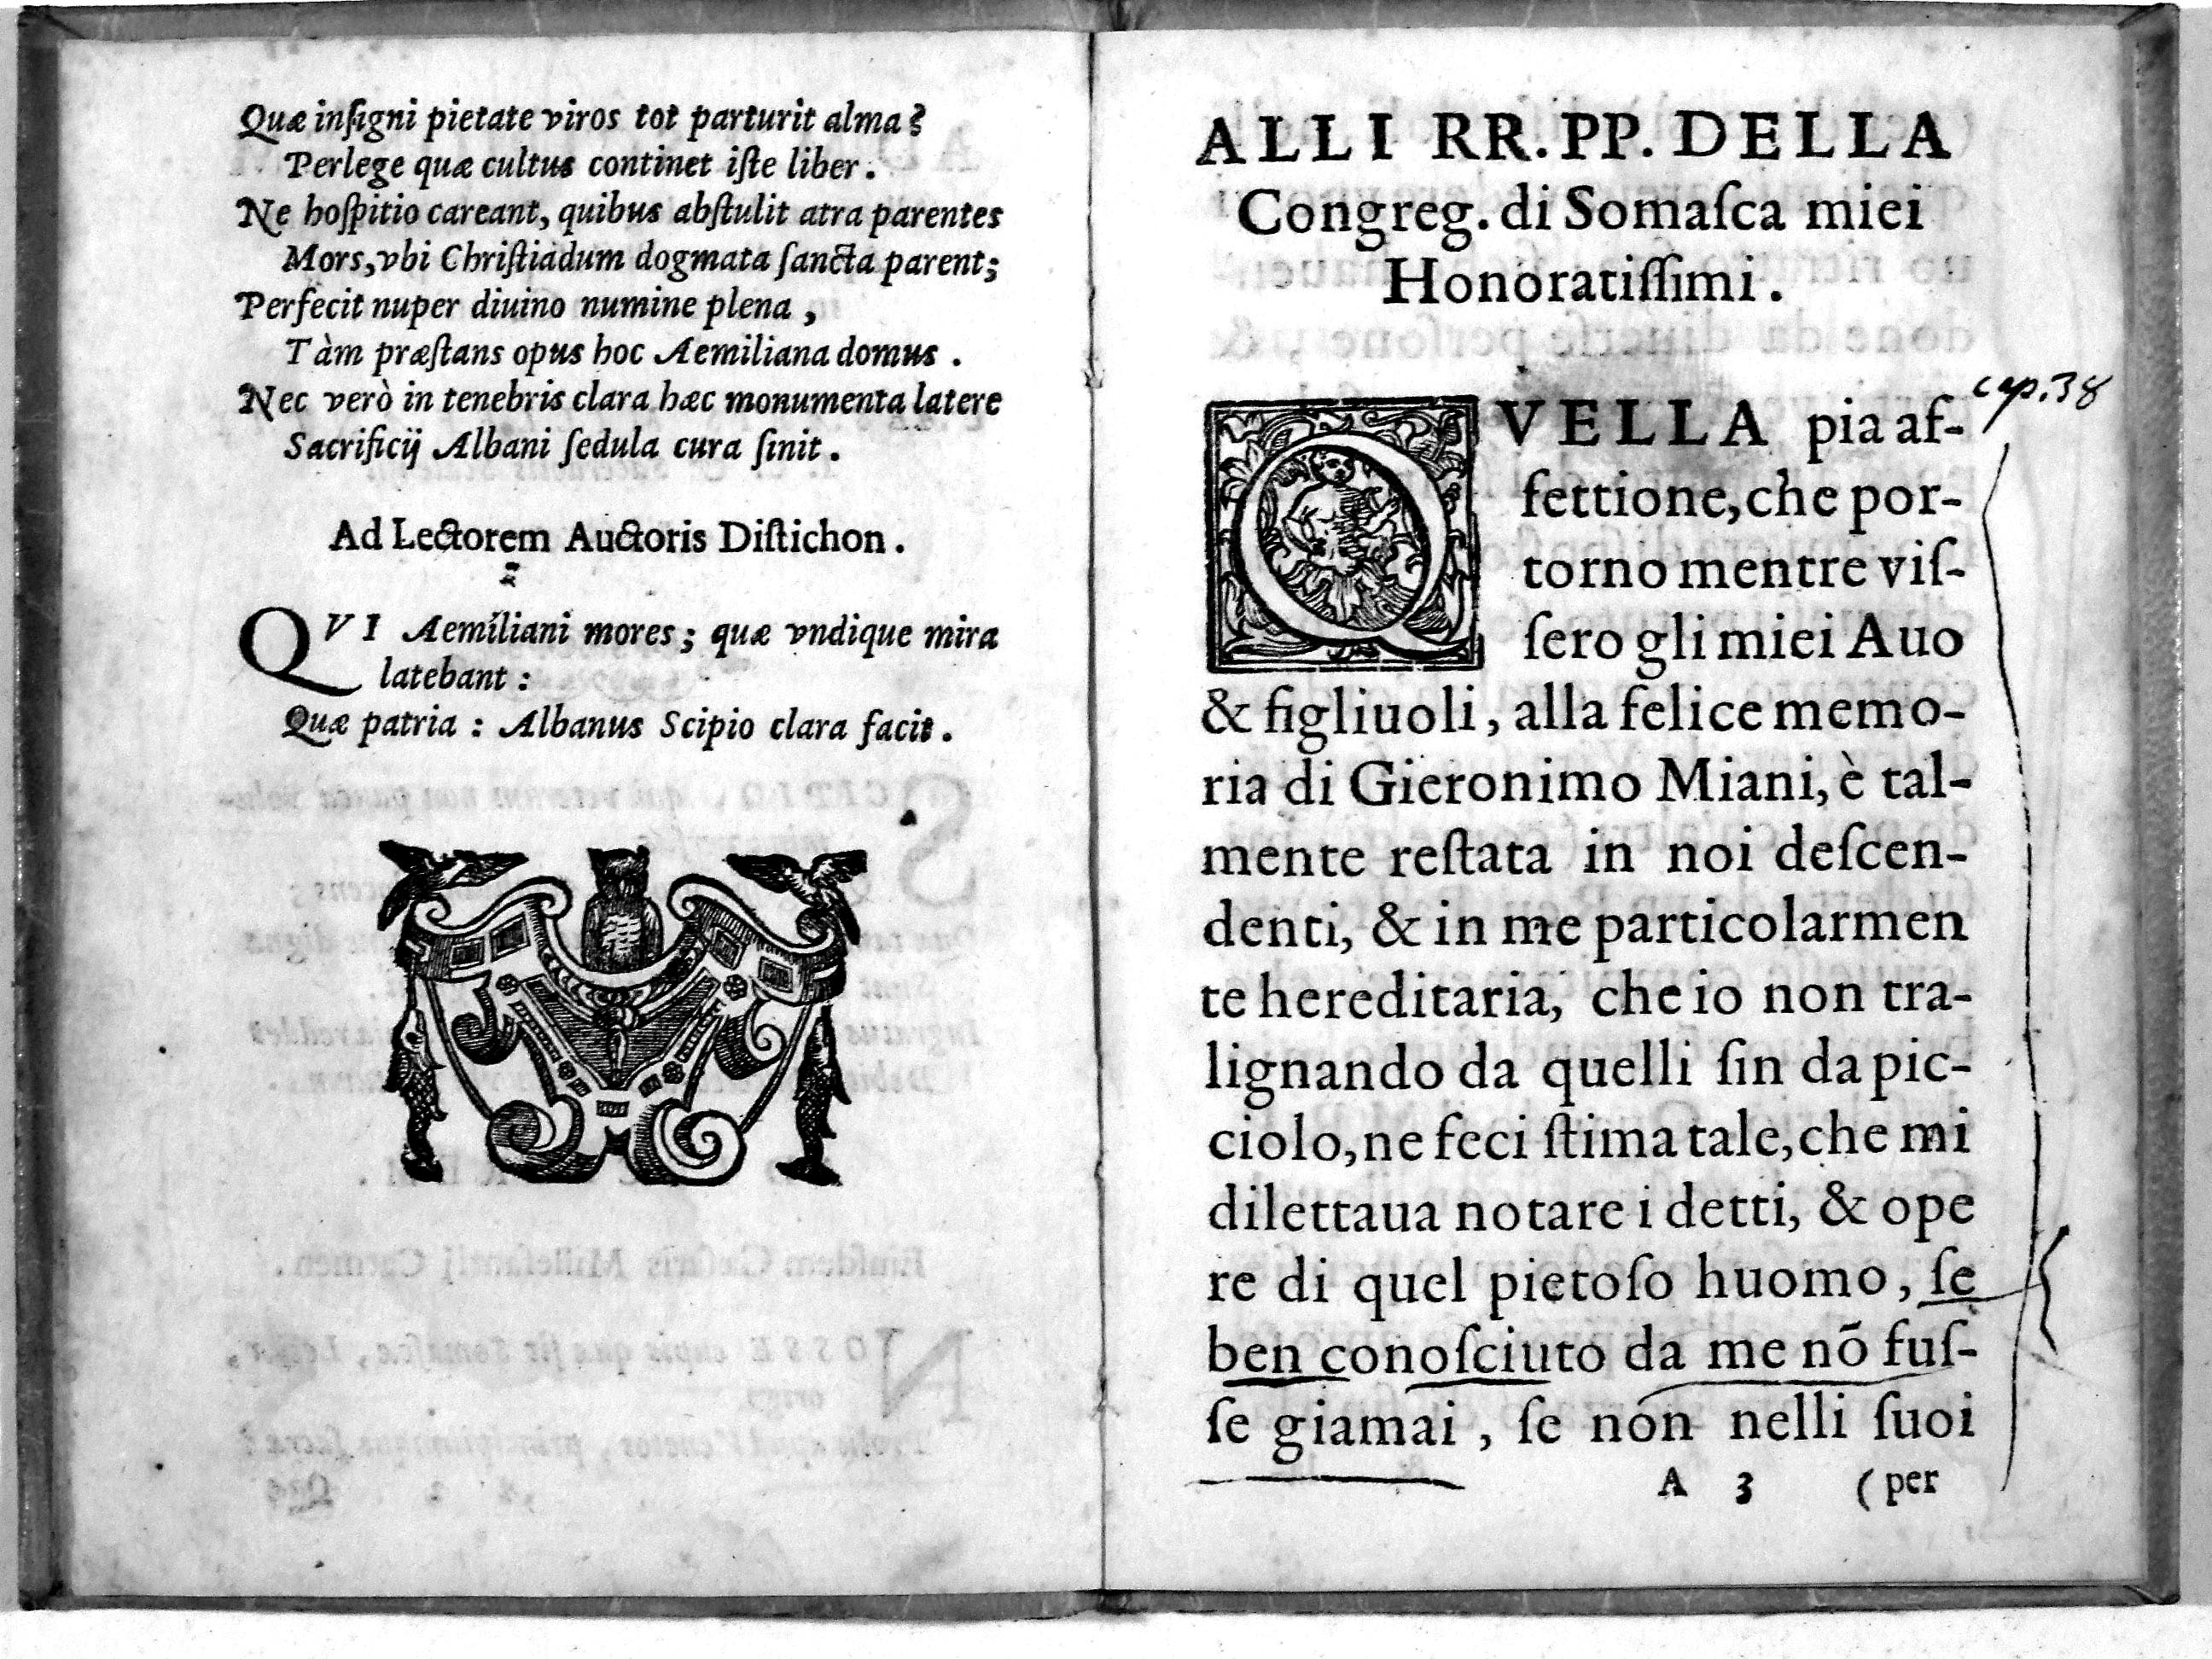 Quæ inſigni pietate viros tot parturit alma?
Perlege quæ cultus continet iſte liber.
Ne hoſpitio careant, quibus abſtulit atra parentes
Mors, vbi Chriſtiadum dogmata ſancta parent;
Perfecit nuper diuino numine plena,
Tàm præſtans opus hoc Aemiliana domus.
Nec verò in tenebris clara hæc monumenta latere
Sacrificij Albani ſedula cura ſinit.
Ad Lectorem Auctoris Diſtichon.
QVI Aemiliani mores; quæ vndique mira
latebant:
Quæ patria: Albanus Scipio clara facit.
ALLI RR. PP. DELLA
Congreg. di Somaſca miei
Honoratiſſimi.
cap. 38
QVELLA pia af-
fettione, che por-
torno mentre viſ-
ſero gli miei Auo
& figliuoli, alla felice memo-
ria di Gieronimo Miani, è tal-
mente reſtata in noi deſcen-
denti, & in me particolarmen
te hereditaria, che io non tra-
lignando da quelli ſin da pic-
ciolo, ne feci ſtima tale, che mi
dilettaua notare i detti, & ope
re di quel pietoſo huomo, ſe
ben conoſciuto da me nõ fuſ-
ſe giamai, ſe non nelli ſuoi
A 3 (per